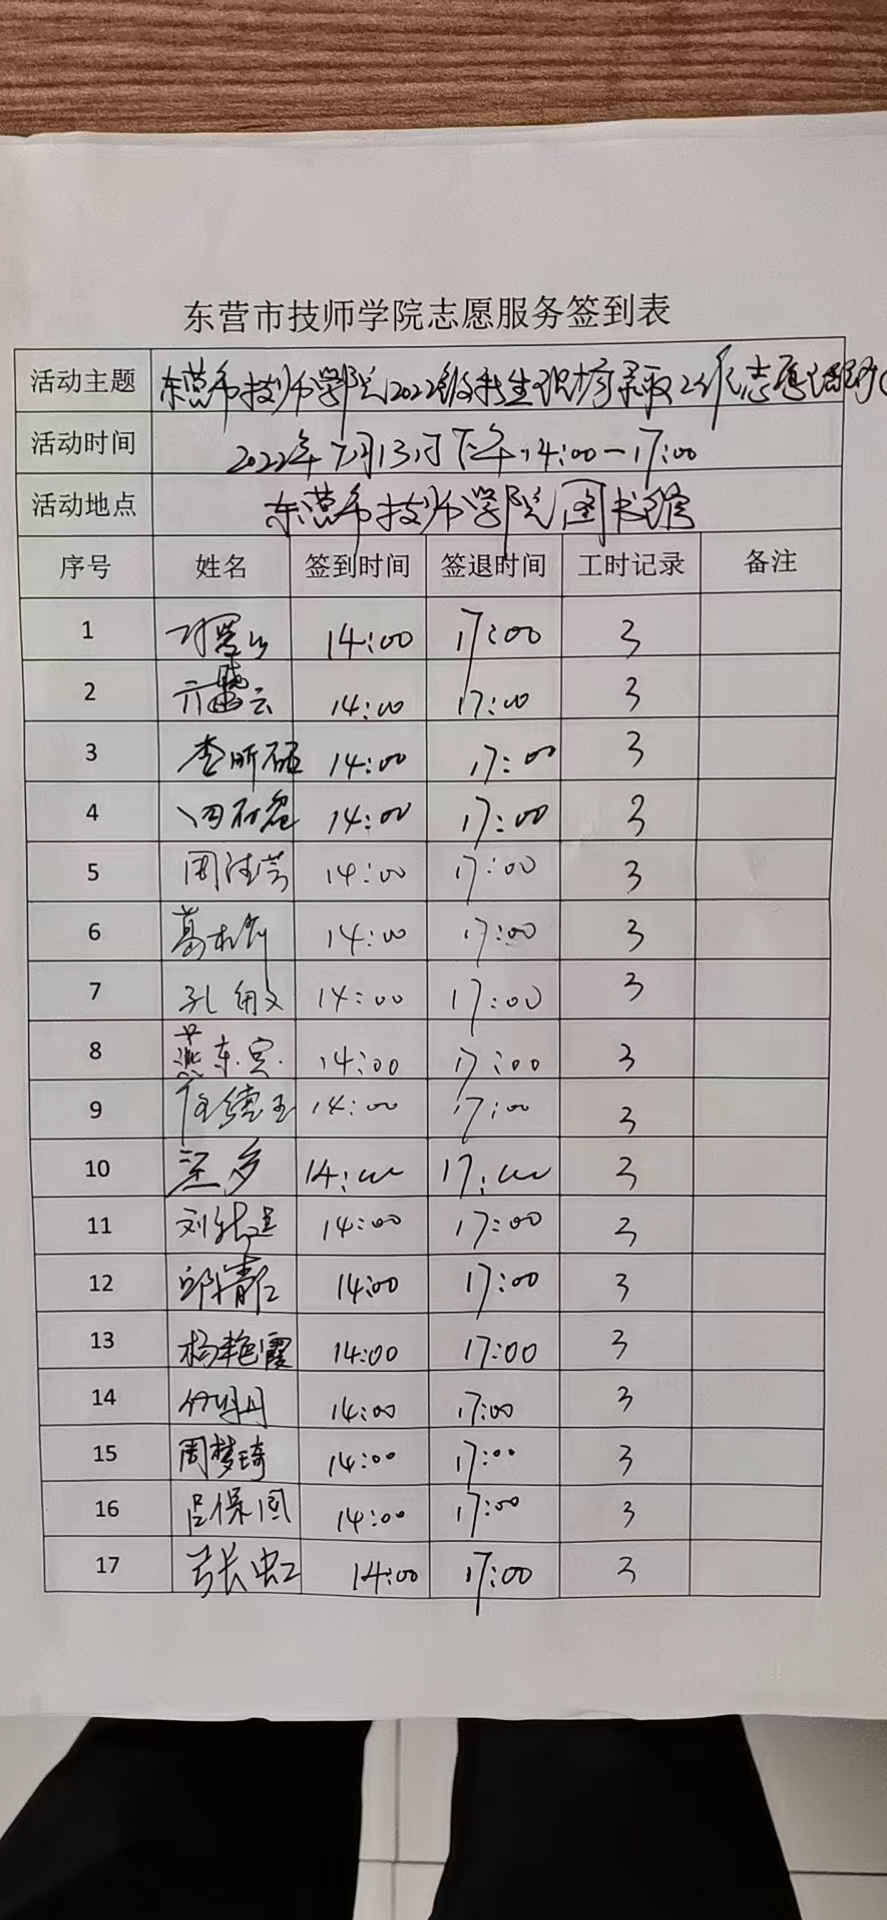 东营市技师学院志愿服务签到表
活动主题 东营市技师学院2022级新生现场录取工作志愿服务
活动时间 2022年7月13日下午14:00—17:00
活动地点 东营市技师学院图书馆
序号 姓名 签到时间 签退时间 工时记录 备注
1 14:00 17:00 3
2 14:00 17:00 3
3 李昕硕 14:00 17:00 3
4 14:00 17:00 3
5 14:00 17:00 3
6 14:00 17:00 3
7 孔敏 14:00 17:00 3
8 燕东宾 14:00 17:00 3
9 任德玉 14:00 17:00 3
10 14:00 17:00 3
11 14:00 17:00 3
12 14:00 17:00 3
13 杨艳霞 14:00 17:00 3
14 14:00 17:00 3
15 周梦琦 14:00 17:00 3
16 吕保国 14:00 17:00 3
17 张虹 14:00 17:00 3